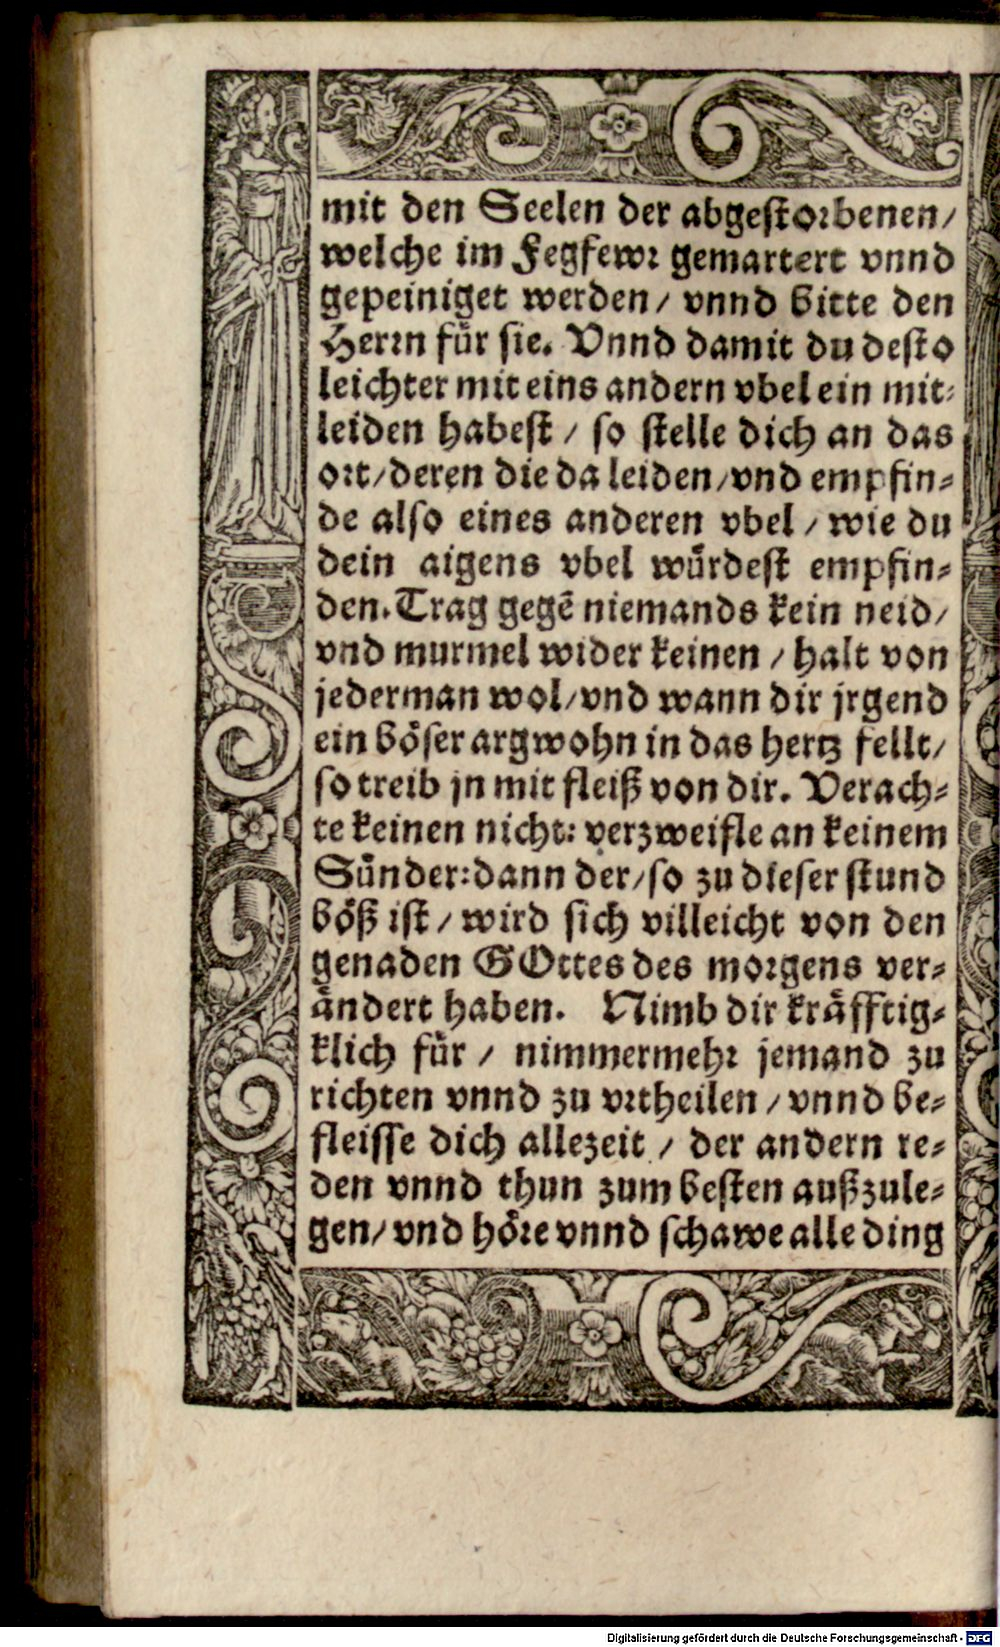 mit den Seelen der abgestorbenen/
welche im Fegfewr gemartert vnnd
gepeiniget werden/ vnnd bitte den
Herrn für sie. Vnnd damit du desto
leichter mit eins andern vbel ein mit-
leiden habest / so stelle dich an das
ort/deren die da leiden/vnd empfin-
de also eines anderen vbel / wie du
dein aigens vbel würdest empfin-
den. Trag gegẽ niemands kein neid/
vnd murmel wider keinen / halt von
jederman wol/vnd wann dir jrgend
ein böser argwohn in das hertz fellt/
so treib jn mit fleiß von dir. Verach-
te keinen nicht: verzweifle an keinem
Sünder:dann der/so zu dieser stund
böß ist / wird sich villeicht von den
genaden GOttes des morgens ver-
ändert haben. Nimb dir kräfftig-
klich für / nimmermehr jemand zu
richten vnnd zu vrtheilen / vnnd be-
fleisse dich allezeit / der andern re-
den vnnd thun zum besten außzule-
gen/ vnd höre vnnd schawe alle ding
Digitalisierung gefördert durch die Deutsche Forschungsgemeinschaft - DFG